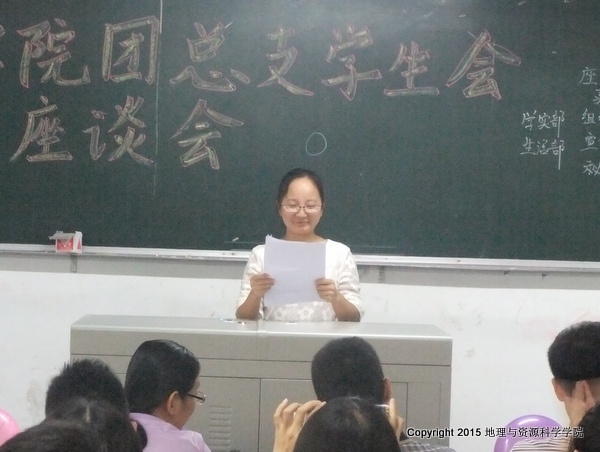 学院团总支学生会
座谈会
学实部
生活部
座
组
Copyright 2015 地理与资源科学学院